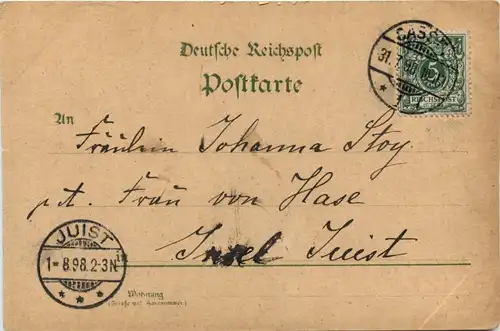 Deutsche Reichspost
Postkarte
CASSEL
31.7.98
5
REICHSPOST
An
Fräulein Johanna Stoy
p.A. Frau von Hase
Insel Juist
JUIST
1-8.98.2-3N
Wohnung
(Straße und Hausnummer)